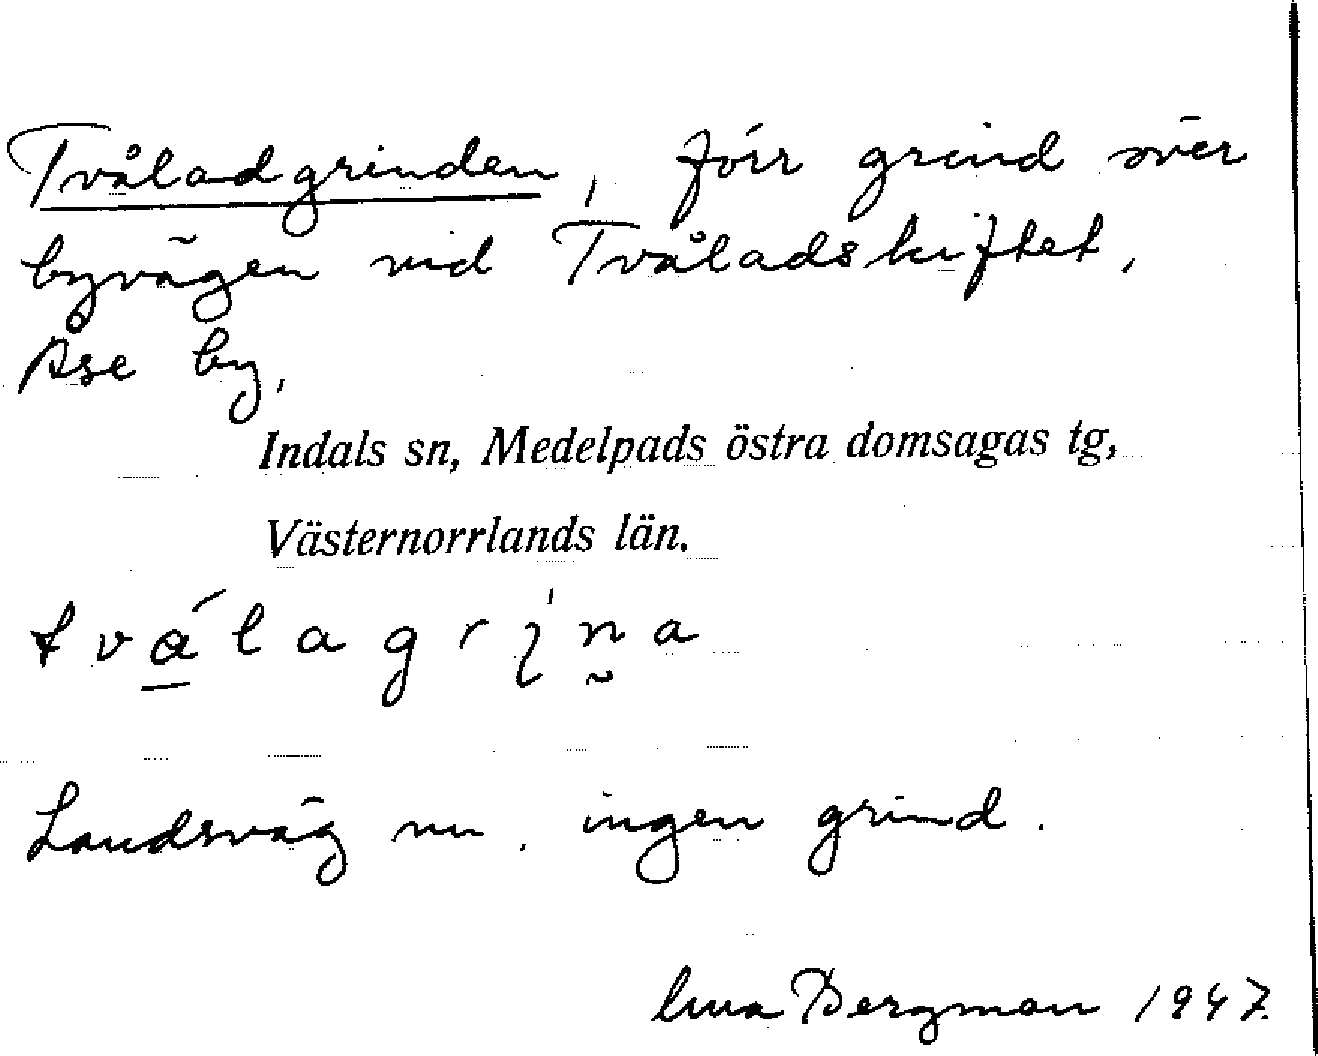 Tvåladgrinden, förr grind över
byvägen vid Tvåladskiftet,
Åse by,
Indals sn, Medelpads östra domsagas tg,
Västernorrlands län.
Landsväg nu, ingen grind.
Bergman 1947.